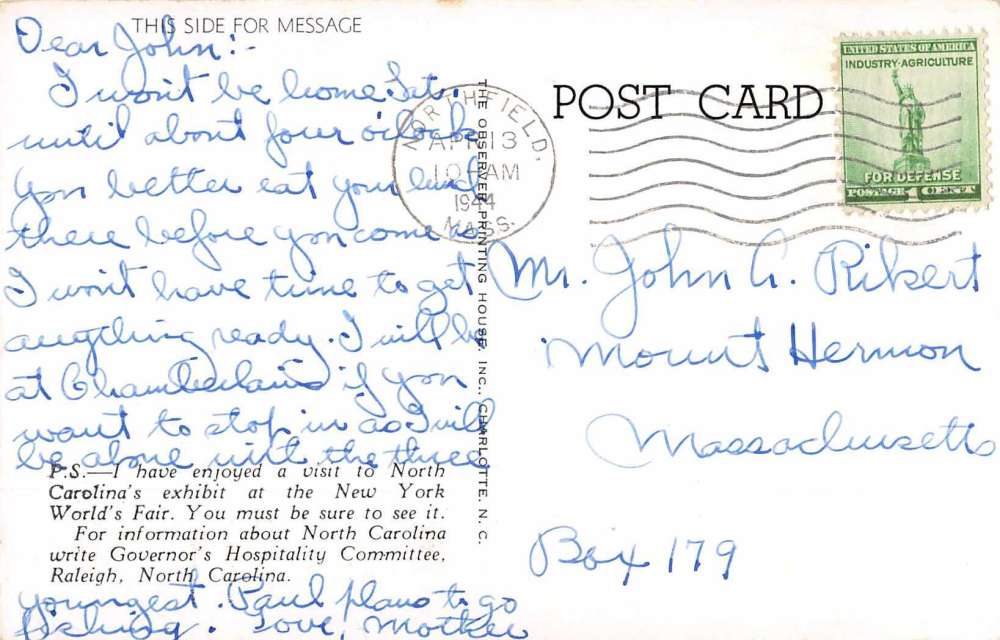 THIS SIDE FOR MESSAGE
Dear John:-
I won't be home Sat.
until about four o'clock
You better eat your lunch
there before you come as
I won't have time to get
anything ready. I will be
at Chamberlains if you
want to stop in as I will
be alone with the three
P.S.—I have enjoyed a visit to North
Carolina's exhibit at the New York
World's Fair. You must be sure to see it.
For information about North Carolina
write Governor's Hospitality Committee,
Raleigh, North Carolina.
youngest. Paul plans to go
fishing. Love, Mother
THE OBSERVER PRINTING HOUSE, INC., CHARLOTTE, N. C.
NORTHFIELD,
APR 13
10 AM
1944
MASS.
POST CARD
UNITED STATES OF AMERICA
INDUSTRY·AGRICULTURE
FOR DEFENSE
POSTAGE 1 CENT
Mr. John A. Rikert
Mount Hermon
Massachusetts
Box 179